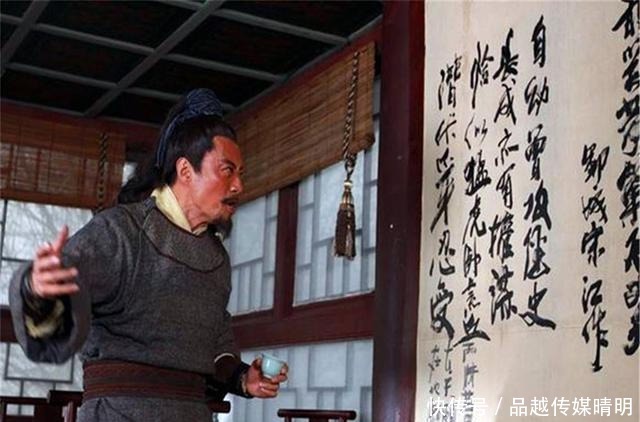 鄆城宋江作
自幼曾攻经史
長成亦有權謀
恰似猛虎卧荒丘
潜伏爪牙忍受
快传号 / 品越传媒晴明